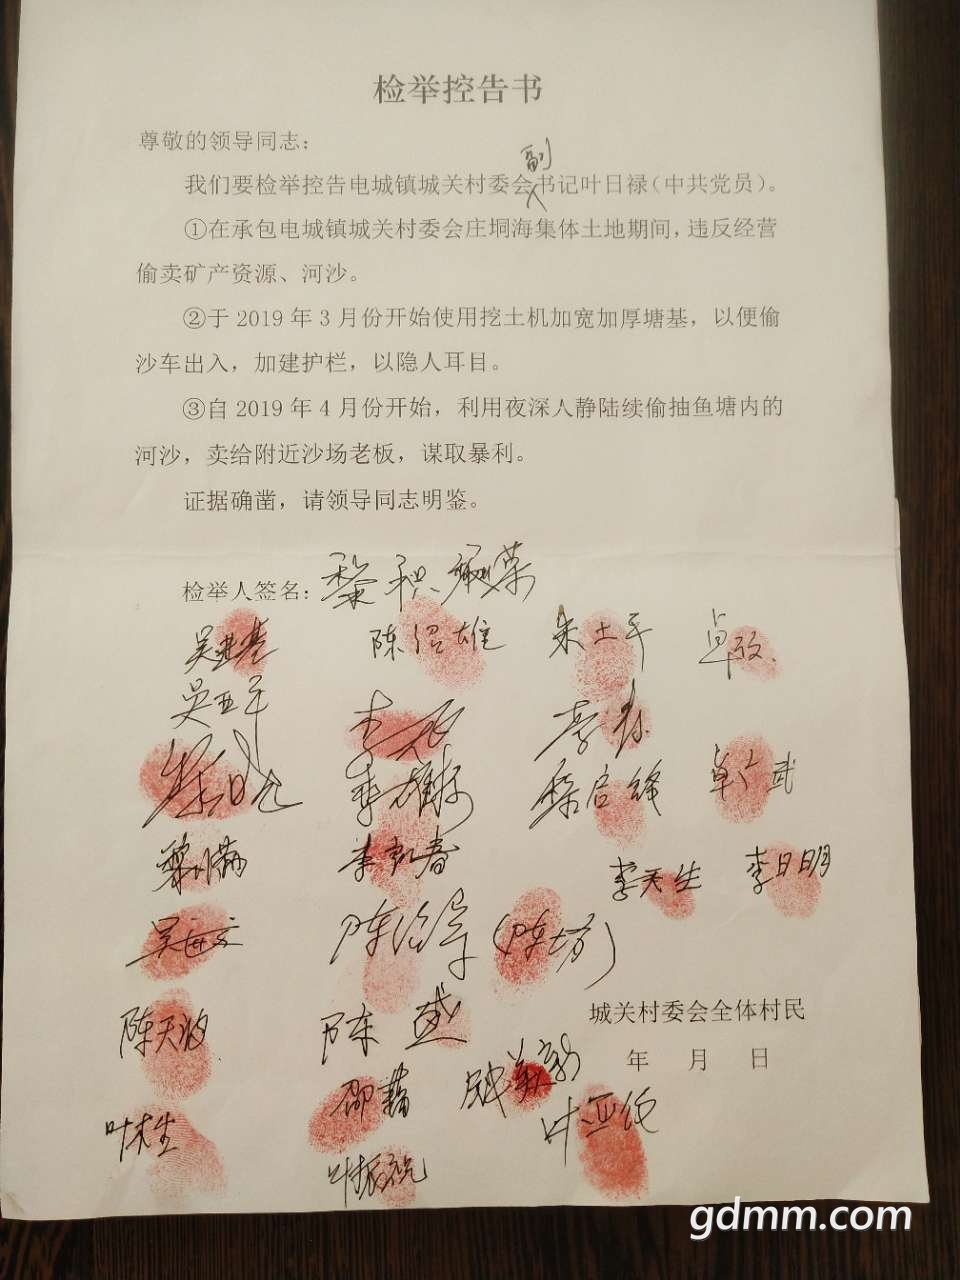 检举控告书
尊敬的领导同志：
副
我们要检举控告电城镇城关村委会书记叶日禄（中共党员）。
①在承包电城镇城关村委会庄垌海集体土地期间，违反经营
偷卖矿产资源、河沙。
②于 2019 年 3 月份开始使用挖土机加宽加厚塘基，以便偷
沙车出入，加建护栏，以隐人耳目。
③自 2019 年 4 月份开始，利用夜深人静陆续偷抽鱼塘内的
河沙，卖给附近沙场老板，谋取暴利。
证据确凿，请领导同志明鉴。
检举人签名：黎积
陈绍雄 朱土平
吴亚平
黎启锋
李天生 李日明
陈天
城关村委会全体村民
陈盛
年 月 日
邵
叶木生
叶振祝
gdmm.com